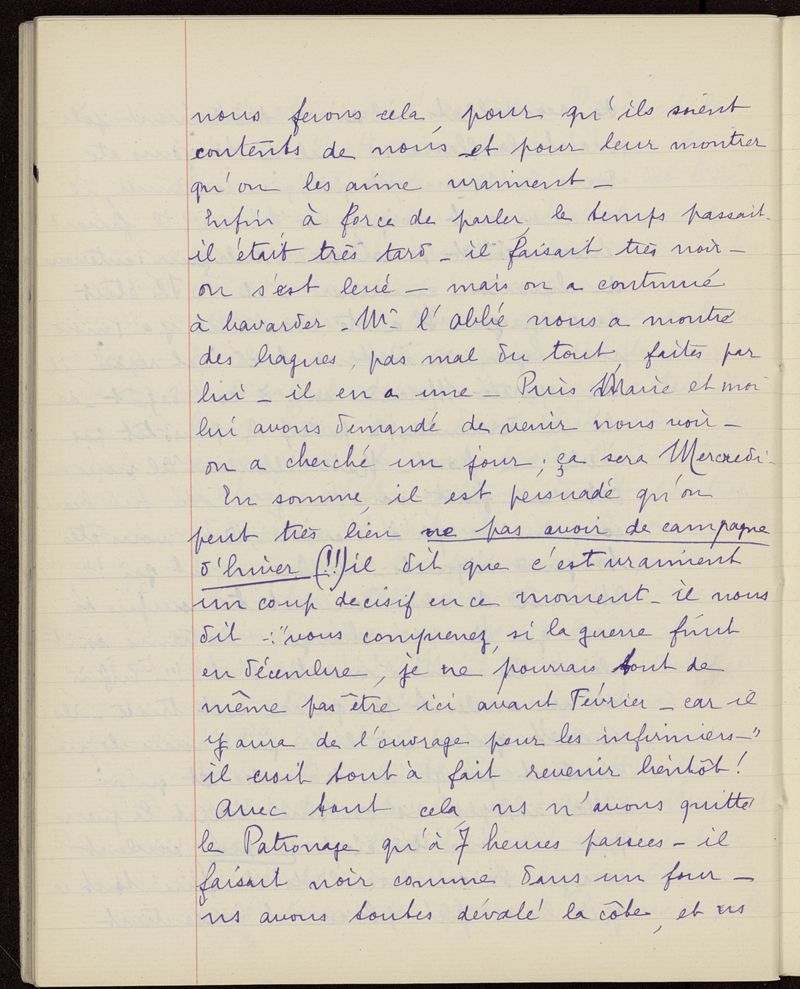 nous ferons cela, pour qu'ils soient
contents de nous, et pour leur montrer
qu'on les aime vraiment _
Enfin, à force de parler, le temps passait.
il était très tard _ il faisait très noir _
on s'est levé _ mais on a continué
à bavarder _ Mr l'abbé nous a montré
des bagues, pas mal du tout, faites par
lui _ il en a une _ Puis Marie et moi
lui avons demandé de venir nous voir _
on a cherché un jour ; ça sera Mercredi.
En somme, il est persuadé qu'on
peut très bien ne pas avoir de campagne
d'hiver (!!) il dit que c'est vraiment
un coup decisif en ce moment _ il nous
dit _: "vous comprenez, si la guerre finit
en décembre, je ne pourrais tout de
même pas être ici avant Février _ car il
y aura de l'ouvrage pour les infirmiers _"
il croit tout à fait revenir bientôt !
Avec tout cela, ns n'avons quitté
le Patronage qu'à 7 heures passées _ il
faisait noir comme dans un four _
ns avons toutes dévalé la côte, et ns